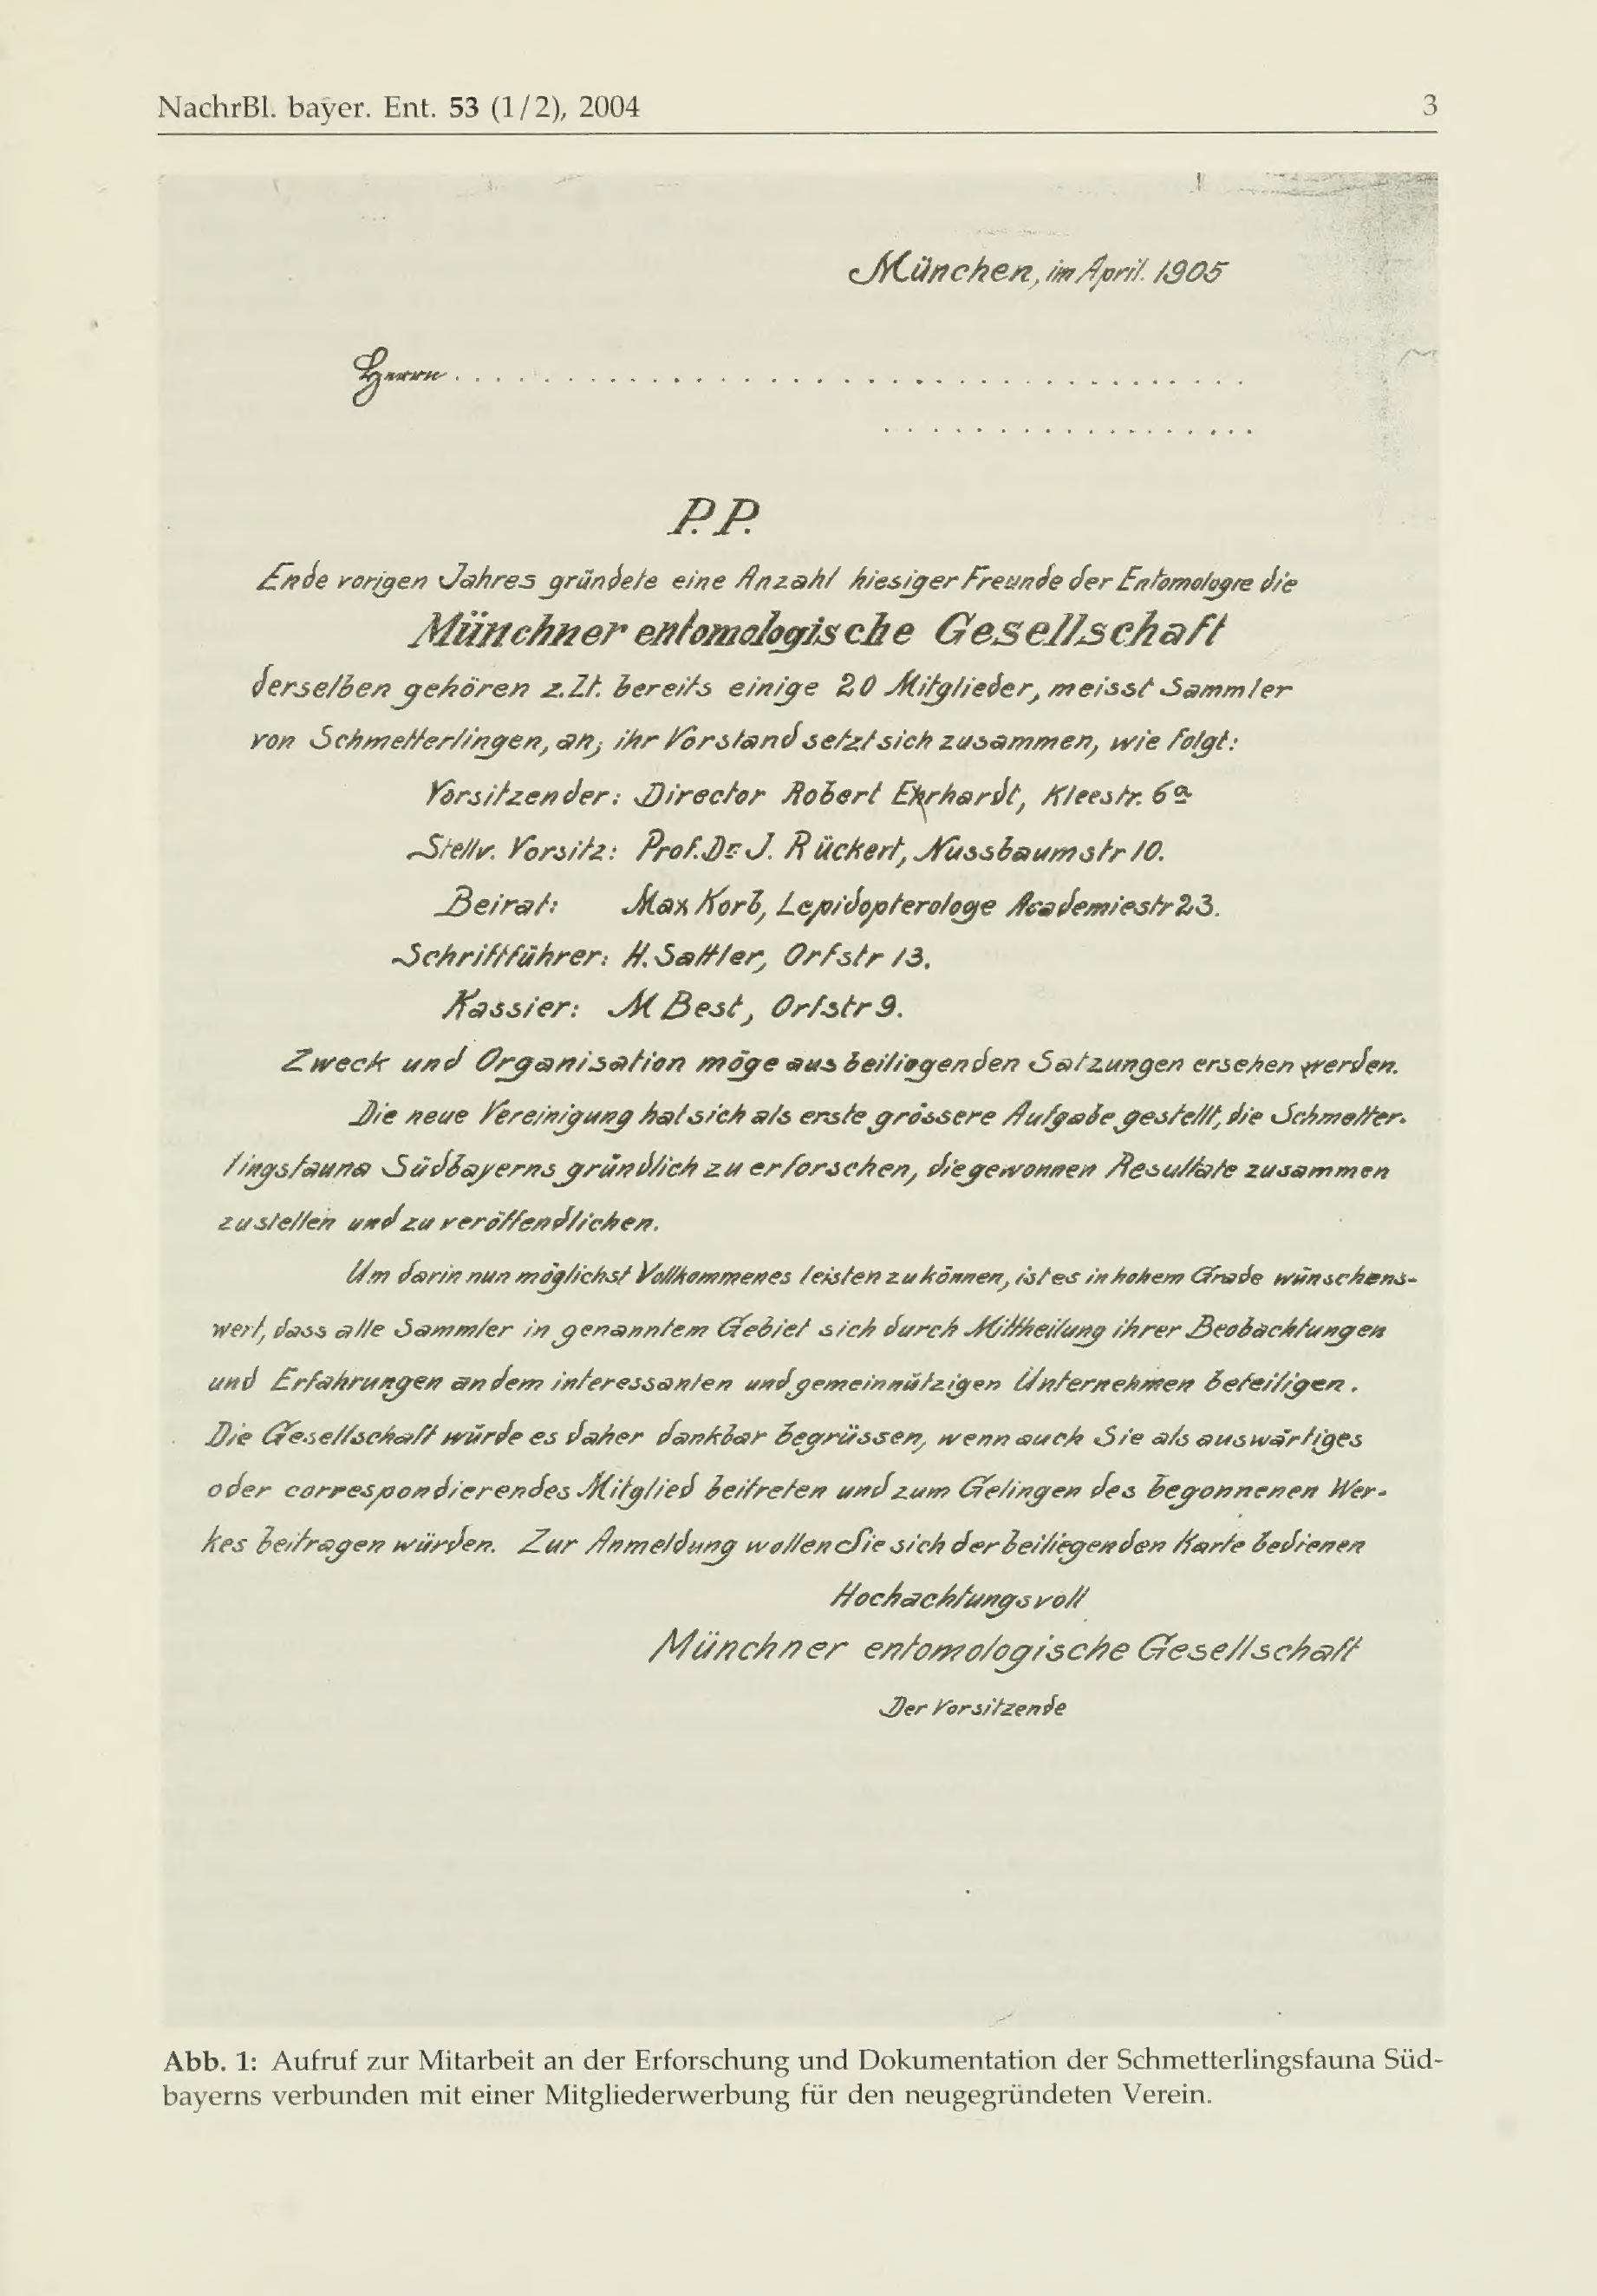 NachrBl. bayer. Ent. 53 (1/2), 2004 3
München, im April. 1905
Herrn ........................................
..................
P.P.
Ende vorigen Jahres gründete eine Anzahl hiesiger Freunde der Entomologie die
Münchner entomologische Gesellschaft
derselben gehören z.Zt. bereits einige 20 Mitglieder, meisst Sammler
von Schmetterlingen, an; ihr Vorstand setzt sich zusammen, wie folgt:
Vorsitzender: Director Robert Ehrhardt, Kleestr. 6a
Stellv. Vorsitz: Prof. Dr J. Rückert, Nussbaumstr 10.
Beirat: Max Korb, Lepidopterologe Academiestr 23.
Schriftführer: H. Sattler, Orfstr 13.
Kassier: M Best, Orfstr 9.
Zweck und Organisation möge aus beiliegenden Satzungen ersehen werden.
Die neue Vereinigung hat sich als erste grössere Aufgabe gestellt, die Schmetter-
lingsfauna Südbayerns gründlich zu erforschen, die gewonnen Resultate zusammen
zu stellen und zu veröffendlichen.
Um darin nun möglichst Vollkommenes leisten zu können, ist es in hohem Grade wünschens-
wert, dass alle Sammler in genanntem Gebiet sich durch Mittheilung ihrer Beobachtungen
und Erfahrungen an dem interessanten und gemeinnützigen Unternehmen beteiligen.
Die Gesellschaft würde es daher dankbar begrüssen, wenn auch Sie als auswärtiges
oder correspondierendes Mitglied beitreten und zum Gelingen des begonnenen Wer-
kes beitragen würden. Zur Anmeldung wollen Sie sich der beiliegenden Karte bedienen
Hochachtungsvoll
Münchner entomologische Gesellschaft
Der Vorsitzende
Abb. 1: Aufruf zur Mitarbeit an der Erforschung und Dokumentation der Schmetterlingsfauna Süd-
bayerns verbunden mit einer Mitgliederwerbung für den neugegründeten Verein.